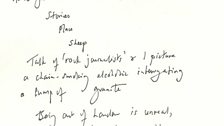 Stories
Place
Sheep
Talk of 'rock journalists' & I picture
a chain-smoking alcoholic interrogating
a lump of granite
Being out of London is unreal,